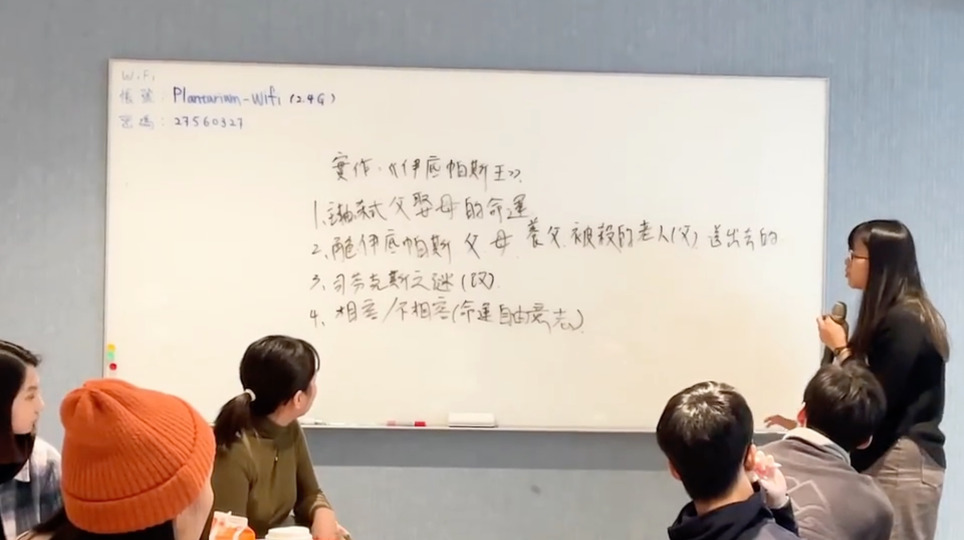 WiFi
帳號: Plantarium-Wifi (2.4G)
密碼: 27560327
實作:《伊底帕斯王》
1. 弒父娶母的命運
2. 角色 伊底帕斯 父 母 養父 被殺的老人(父) 送出去的
3. 司芬克斯之謎(Q2)
4. 相容/不相容(命運自由意志)